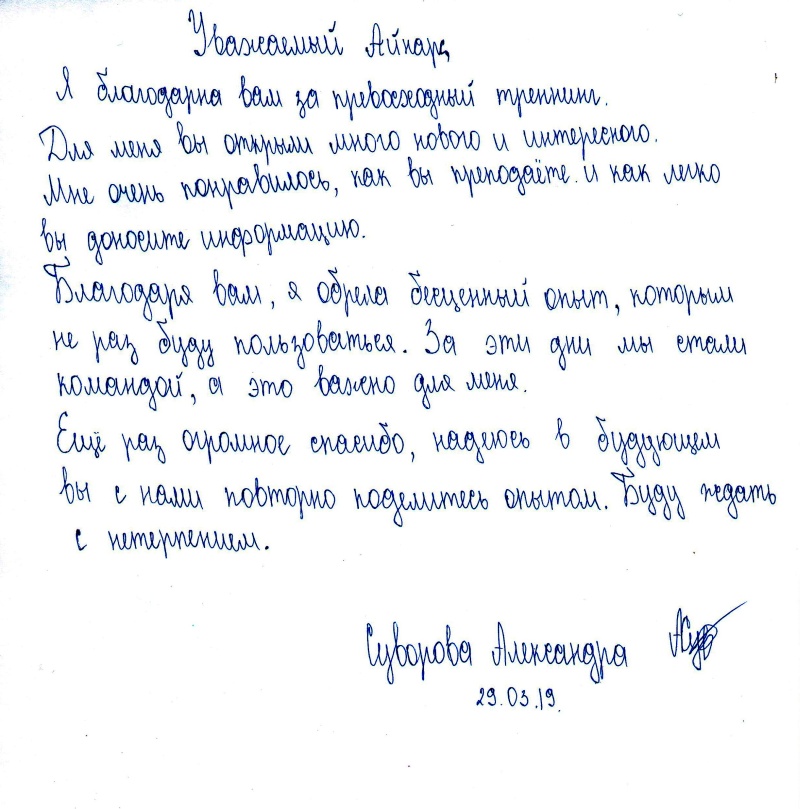 Уважаемый Айнар,
Я благодарна вам за превосходный треннинг.
Для меня вы открыли много нового и интересного.
Мне очень понравилось, как вы преподаёте и как легко
вы доносите информацию.
Благодаря вам, я обрела бесценный опыт, которым
не раз буду пользоваться. За эти дни мы стали
командой, а это важно для меня.
Ещё раз огромное спасибо, надеюсь в будующем
вы с нами повторно поделитесь опытом. Буду ждать
с нетерпением.
Суворова Александра
29.03.19.